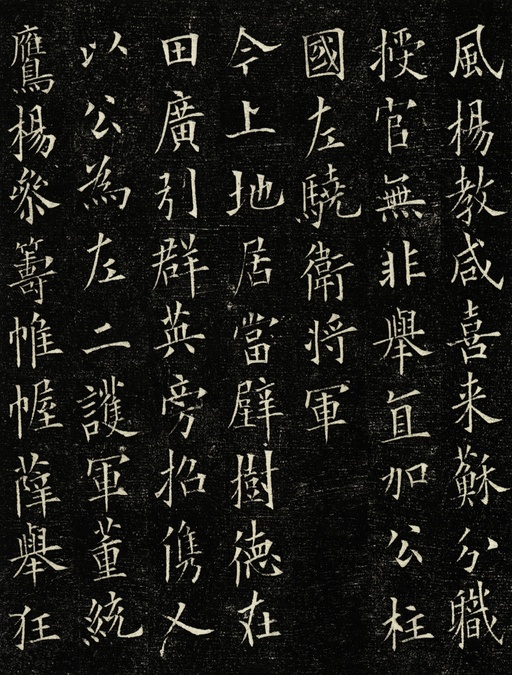 風楊教咸喜来蘇分職
授官無非舉直加公柱
國左驍衛将軍
今上地居當璧樹德在
田廣引群英旁招儁乂
以公為左二護軍董統
鷹楊參籌帷幄薛舉狂